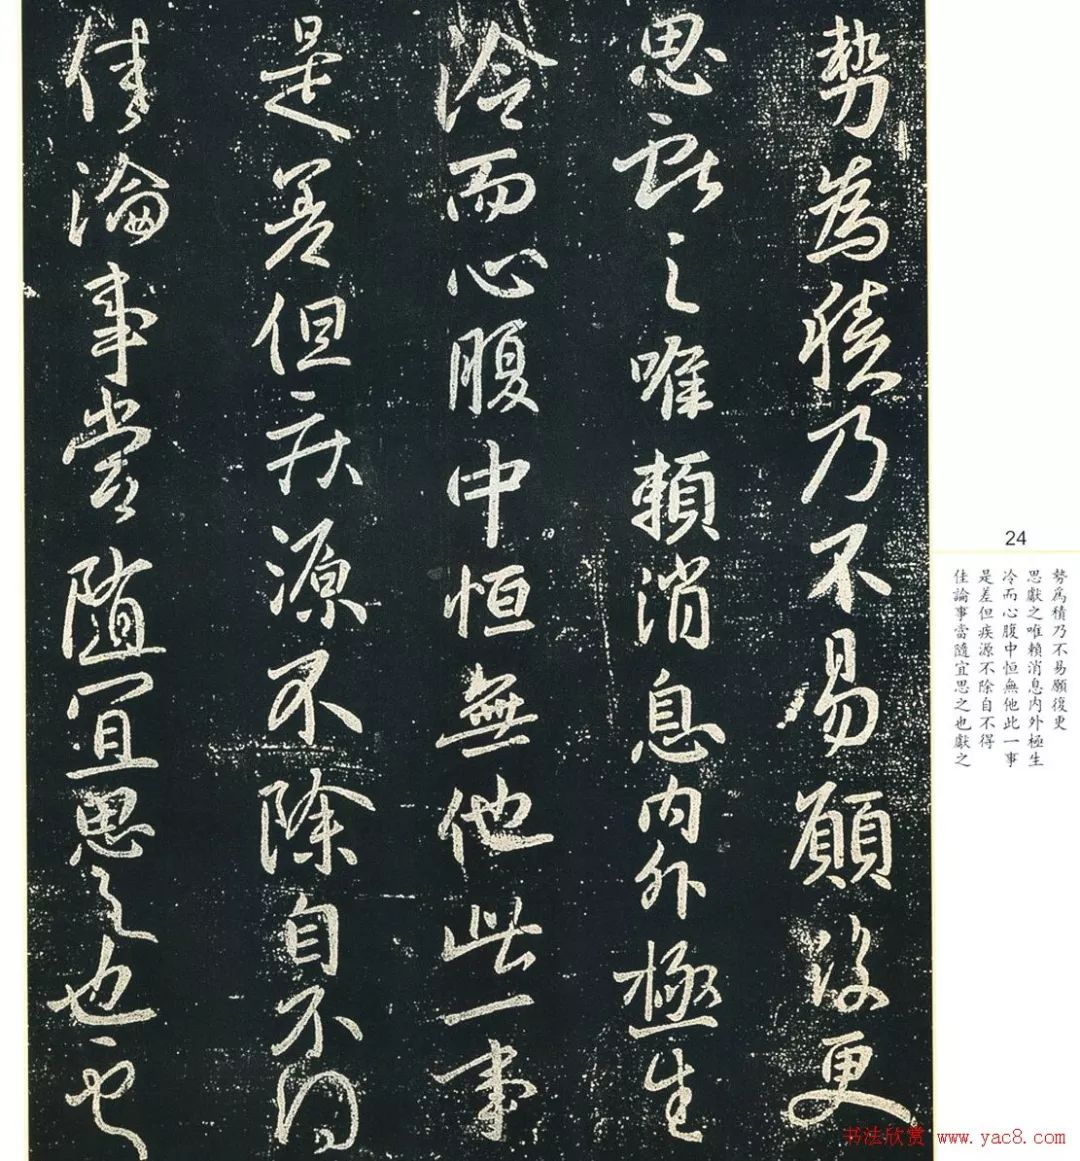 勢為積乃不易願復更
思獻之唯賴消息内外極生
冷而心腹中恒無他此一事
是差但疾源不除自不得
佳論事當隨宜思之也
24
勢為積乃不易願復更
思獻之唯賴消息内外極生
冷而心腹中恒無他此一事
是差但疾源不除自不得
佳論事當隨宜思之也獻之
书法欣赏 www.yac8.com